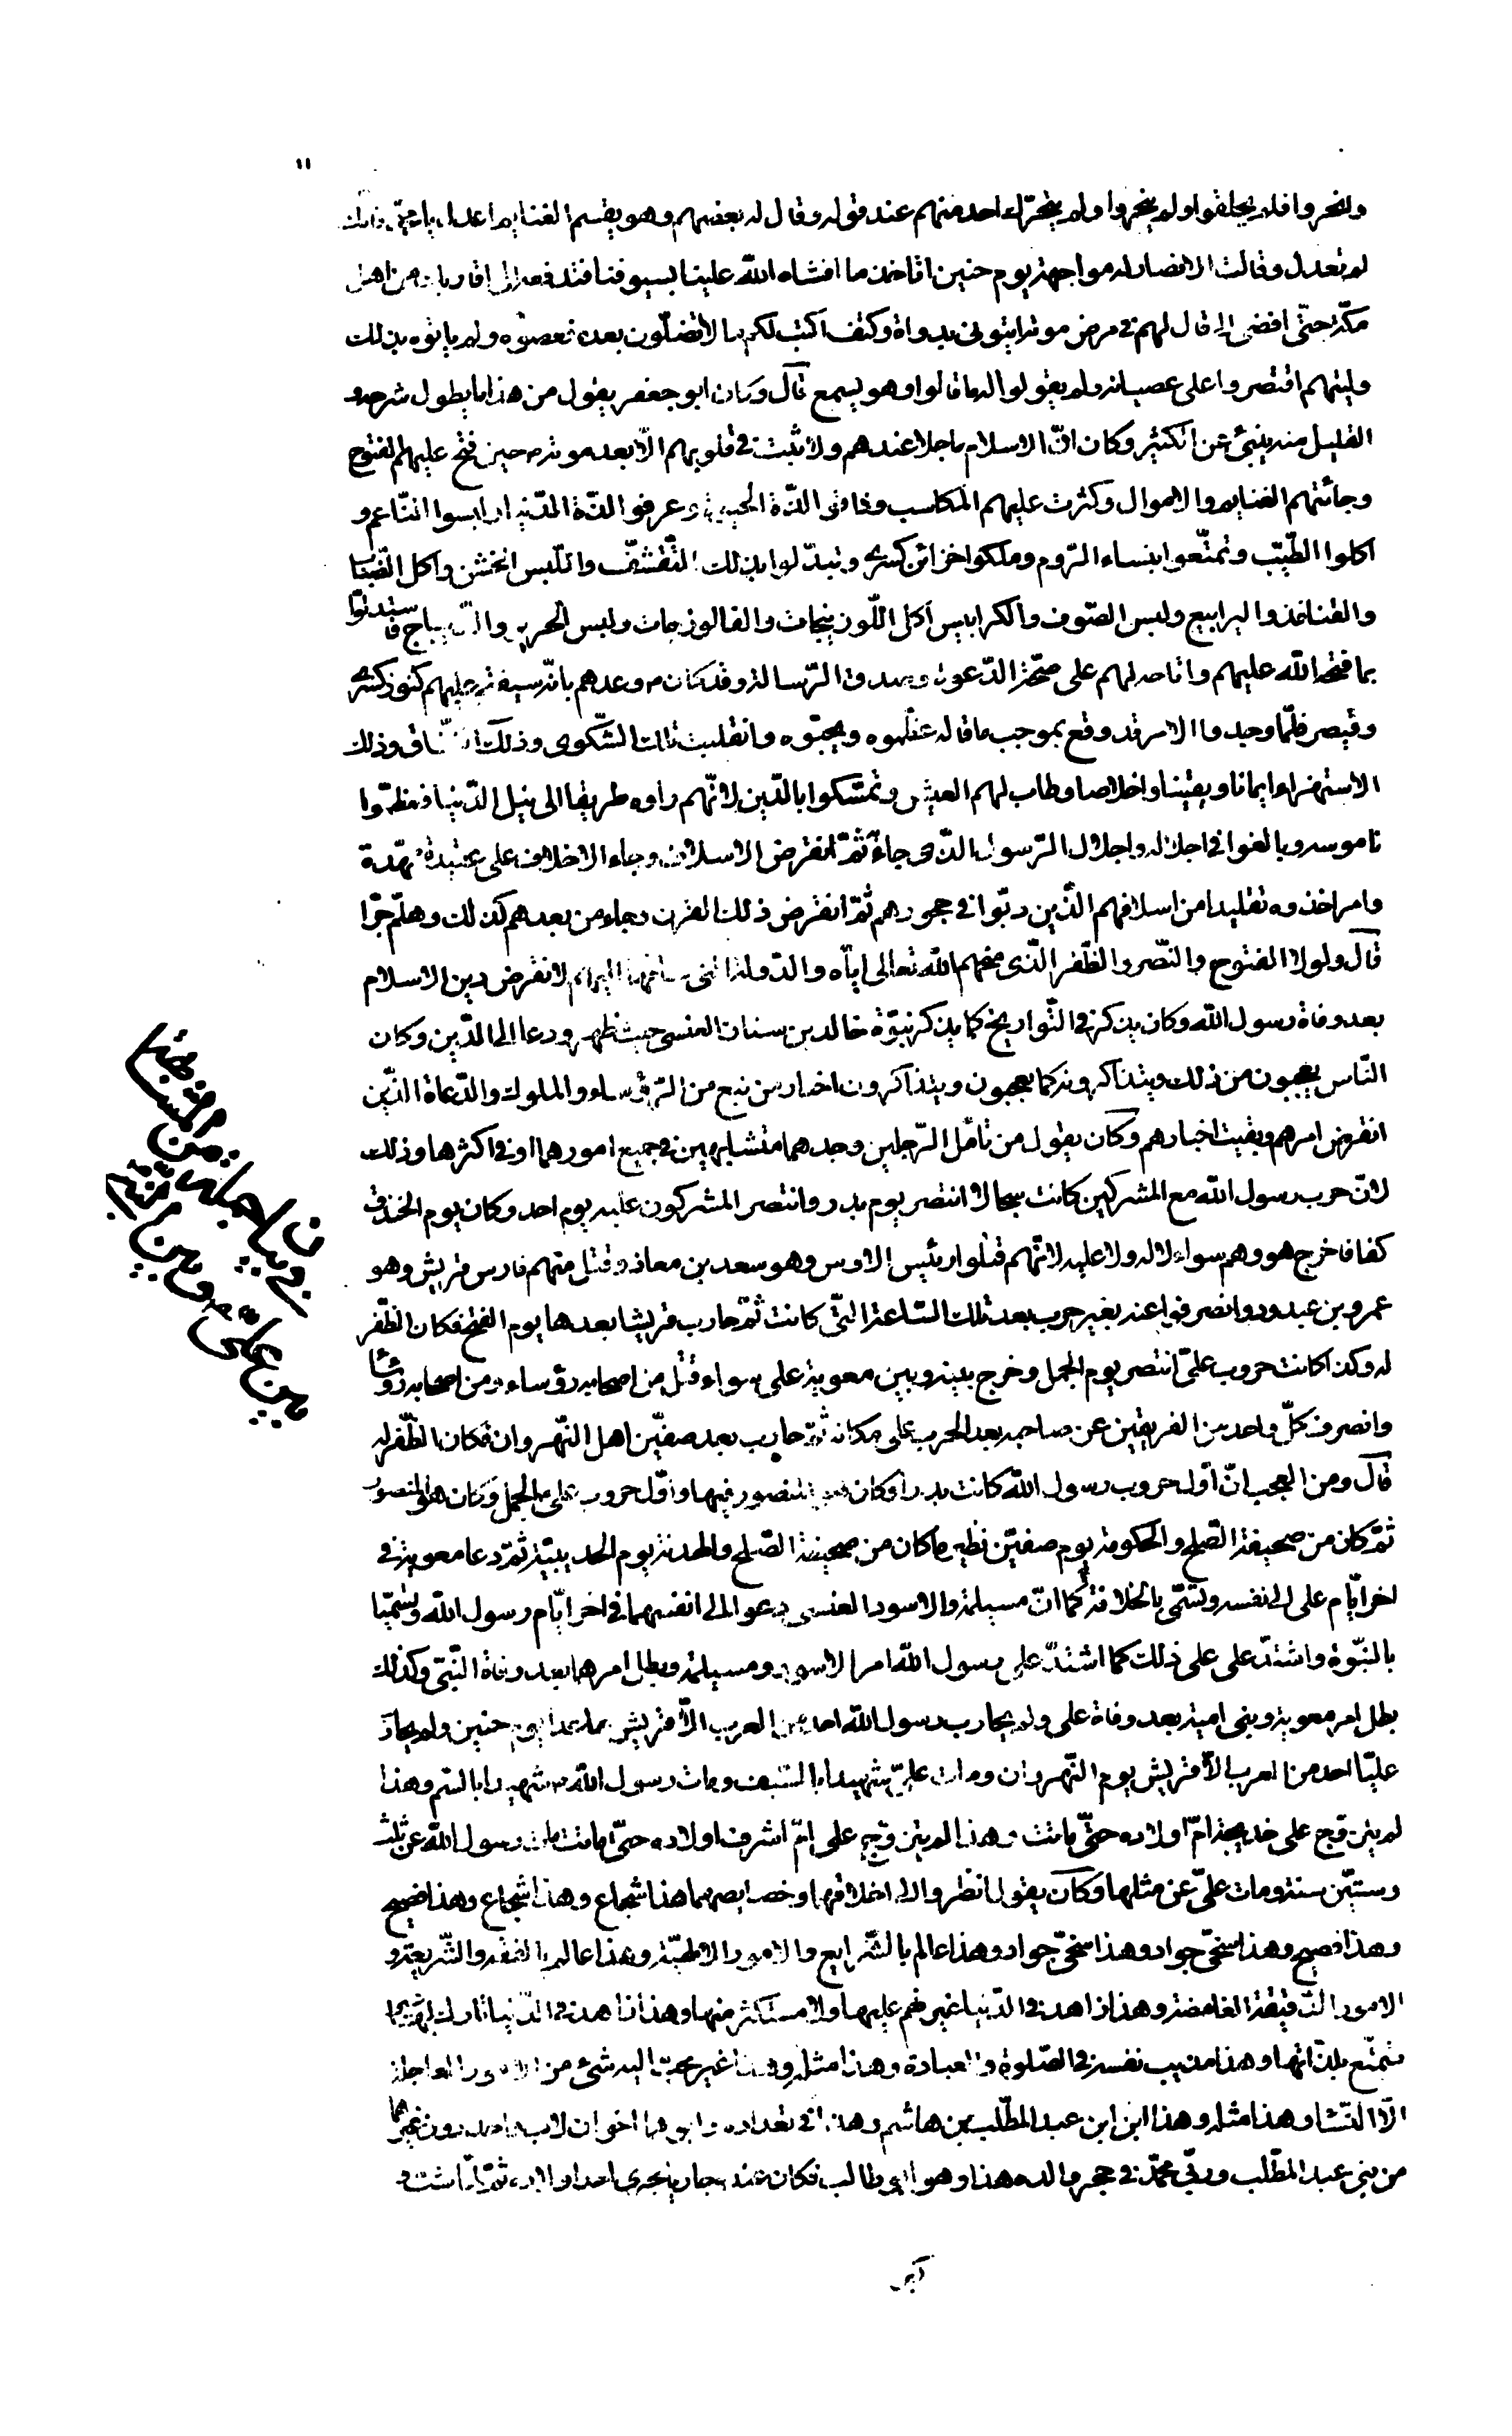 ١١
وانحروا فلم يحلقوا ولم ينحروا ولم يتحرّك احد منهم عند قوله وقال له بعضهم وهو يقسم الغنايم اعدل يا محمّد فانك
لم تعدل وقالت الانصار له مواجهة يوم حنين اتاخذ ما افاء الله علينا بسيوفنا فتدفعه الى اقاربك من اهل
مكّة حتّى افضى الى قال لهم في مرض موته ايتونى بدواة وكتف اكتب لكم ما لا تضلّون بعده فعصوه ولم ياتوه بذلك
وليتهم اقتصروا على عصيانه ولم يقولوا له ما قالوا وهو يسمع قال وكان ابو جعفر يقول من هذا ما يطول شرحه و
القليل منه ينبئ عن الكثير وكان انّ الاسلام ما حلا عندهم ولا ثبت في قلوبهم الّا بعد موته حين فتح عليهم الفتوح
وجائتهم الغنايم والاموال وكثرت عليهم المكاسب وذاقوا لذّة الحيوة وعرفوا لذّة الدّنيا ولبسوا النّاعم و
اكلوا الطّيّب وتمتّعوا بنساء الرّوم وملكوا خزائن كسرى وتبدّلوا بذلك القشف واللّبس الخشن واكل الضّباب
والقنافذ واليرابيع ولبس الصّوف والكرابيس اكل اللّوزينجات والفالوذجات ولبس الحرير والديباج فاستدلّوا
بما فتحه الله عليهم واتاحه لهم على صحّة الدّعوة وصدق الرّسالة وقد كان ص وعدهم بانّه سيفتح عليهم كنوز كسرى
وقيصر فلمّا وجدوا الامر قد وقع بموجب ما قاله عظّموه وبجّلوه وانقلبت تلك الشّكوى وذلك النّفاق وذلك
الاستهزاء ايمانا ويقينا واخلاصا وطاب لهم العيش وتمسّكوا بالدّين لانّهم راوه طريقا الى نيل الدّنيا فعظّموا
ناموسه وبالغوا في اجلاله واجلال الرّسول الّذى جاء به ثمّ انقرض الاسلاف وجاء الاخلاف على عقيدة ممهّدة
وامر اخذوه تقليدا من اسلافهم الّذين ربّوا في حجورهم ثمّ انقرض ذلك القرن وجاء من بعدهم كذلك وهلمّ جرّا
قال ولولا الفتوح والنّصر والظّفر الّذى منحهم الله تعالى ايّاه والدّولة الّتى ساقها اليهم لانقرض دين الاسلام
بعد وفاة رسول الله وكان يذكر في التّواريخ كما يذكر نبوّة خالد بن سنان العنسى حيث ظهر ودعا الى الدّين وكان
النّاس يعجبون من ذلك ويتذاكرونه كما يعجبون ويتذاكرون اخبار من نبع من الرّؤساء والملوك والدّعاة الّذين
انقرض امرهم وبقيت اخبارهم وكان يقول من تامّل الرّجلين وجدهما متشابهين في جميع امورهما او في اكثرها وذلك
لانّ حرب رسول الله مع المشركين كانت سجالا انتصر يوم بدر وانتصر المشركون عليه يوم احد وكان يوم الخندق
كفافا خرج هو وهم سواء لا له ولا عليه لانّهم قتلوا رئيس الاوس وهو سعد بن معاذ وقتل منهم فارس قريش وهو
عمرو بن عبدود وانصرفوا عنه بغير حرب بعد تلك السّاعة الّتى كانت ثمّ حارب قريشا بعدها يوم الفتح فكان الظّفر
له وكذا كانت حروب علىّ انتصر يوم الجمل وخرج بينه وبين معوية على سواء قتل من اصحابه رؤساء ومن اصحابه رؤساء
وانصرف كلّ واحد من الفريقين عن صاحبه بعد الحرب على مكانه ثمّ حارب بعد صفّين اهل النّهروان فكان الظّفر له
قال ومن العجب انّ اوّل حروب رسول الله كانت بدرا وكان هو المنصور فيها واوّل حروب علىّ الجمل وكان هو المنصور
ثمّ كان من صحيفة الصّلح والحكومة يوم صفّين نظير ما كان من صحيفة الصّلح والهدنة يوم الحديبيّة ثمّ دعا معوية في
اخر ايّام على الى نفسه وتسمّى بالخلافة كما انّ مسيلمة والاسود العنسى دعوا الى انفسهما في اخر ايّام رسول الله وتسمّيا
بالنّبوّة واشتدّ على على ذلك كما اشتدّ على رسول الله امر الاسود ومسيلمة وبطل امرهما بعد وفاة النّبىّ وكذلك
بطل امر معوية وبنى امية بعد وفاة على ولم يحارب رسول الله احد من العرب الّا قريش ما عدا يوم حنين ولم يحارب
عليّا احد من العرب الّا قريش يوم النّهروان ومات علىّ شهيدا بالسّيف ومات رسول الله ص شهيدا بالسّم وهذا
لم يتزوّج على خديجة امّ اولاده حتّى ماتت وهذا لم يتزوّج على امّ اشرف اولاده حتّى ماتت مات رسول الله عن ثلث
وستّين سنة ومات علىّ عن مثلها وكان يقول انظروا الى اخلاقهما وخصايصهما هذا شجاع وهذا شجاع وهذا فصيح
وهذا فصيح وهذا سخىّ جواد وهذا سخىّ جواد وهذا عالم بالشّرايع والامور الالهيّة وهذا عالم بالفقه والشّريعة و
الامور الدّقيقة الغامضة وهذا زاهد في الدّنيا غير نهم عليها ولا مستكثر منها وهذا زاهد في الدّنيا تارك لها غير
متمتّع بلذّاتها وهذا مذيب نفسه في الصّلوة والعبادة وهذا مثله وهذا غير محبّب اليه شئ من الامور العاجلة
الّا النّساء وهذا مثله وهذا ابن ابن عبد المطّلب بن هاشم وهذا في تعداده وابوهما اخوان لاب واحد دون غيرهما
من بنى عبد المطّلب وربّى محمّد في حجر والد هذا وهو ابو طالب فكان عنده جاريا مجرى احد اولاده ثمّ لمّا شبّ و